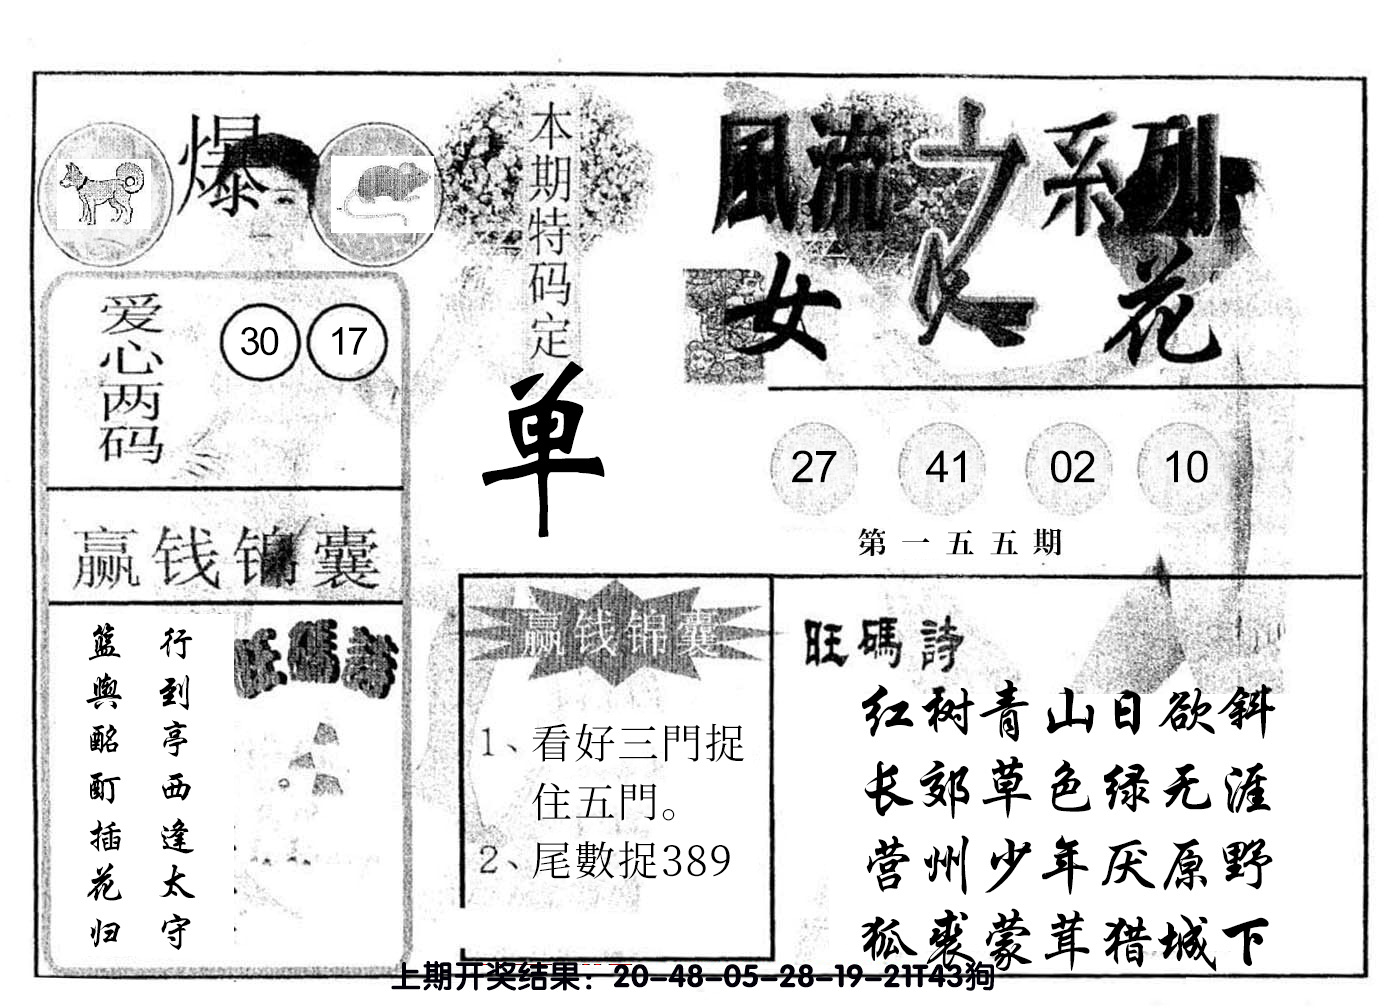 爆
本期特码定
单
風流之系列
女人花
爱心两码
30 17
27 41 02 10
第一五五期
赢钱锦囊
行到亭西逢太守
篮舆酩酊插花归
旺碼詩
赢钱锦囊
1、看好三門捉
住五門。
2、尾數捉389
旺碼詩
红树青山日欲斜
长郊草色绿无涯
营州少年厌原野
狐裘蒙茸猎城下
上期开奖结果：20-48-05-28-19-21T43狗